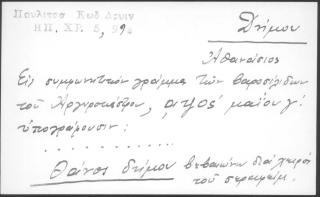 Πουλίτσα Κωδ Δρυιν
ΗΠ. ΧΡ. 5, 99
Δήμου
Ἀθανάσιος
Εἰς συμφωνητικὸν γράμμα τῶν Βαροσλίδων
τοῦ Ἀργυροκάστρου, αψος΄ μαΐου γ΄
ὑπογράφουσιν:
. . . . . . . . . . . .
Θάνος δήμου βεβαιώνω διὰ χειρὸς
τοῦ σεφερεήμ.